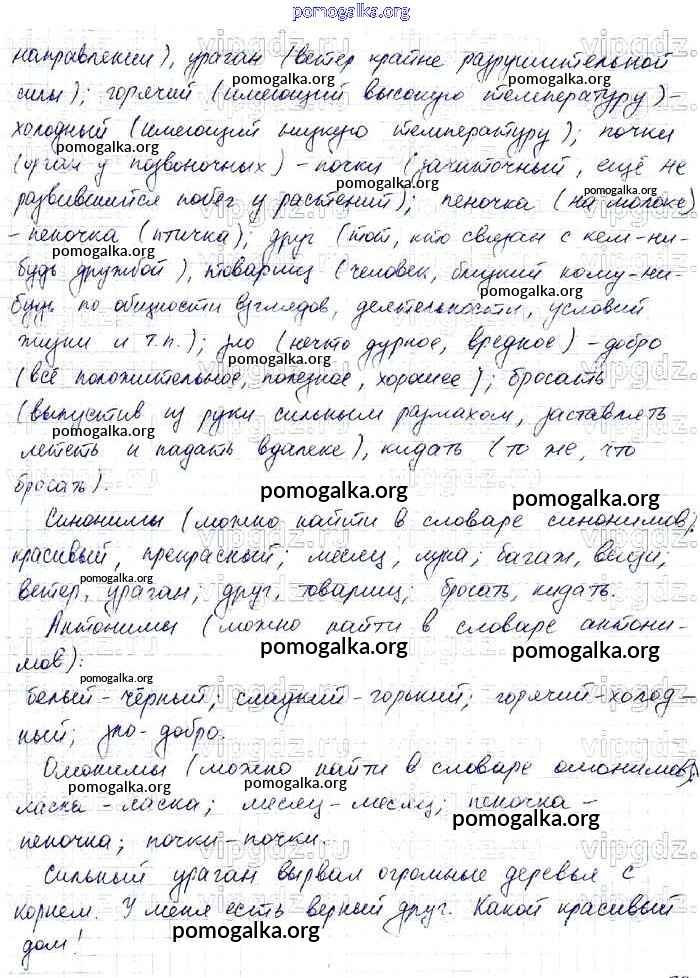 pomogalka.org
направлении), ураган (ветер крайне разрушительной
pomogalka.org
силы); горячий (имеющий высокую температуру) -
pomogalka.org
холодный (имеющий низкую температуру); почки
pomogalka.org
(орган у позвоночных) - почки (зачаточный, ещё не
pomogalka.org
развившийся побег у растений); пеночка (на молоке)
pomogalka.org
- пеночка (птичка); друг (тот, кто связан с кем-ни-
pomogalka.org
будь дружбой), товарищ (человек, близкий кому-ни-
pomogalka.org
будь по общности взглядов, деятельности, условий
жизни и т.п.); зло (нечто дурное, вредное) - добро
pomogalka.org
(всё положительное, полезное, хорошее); бросать
pomogalka.org
(выпустив из руки сильным размахом, заставлять
pomogalka.org
лететь и падать вдалеке), кидать (то же, что
бросать).
pomogalka.org
pomogalka.org
Синонимы (можно найти в словаре синонимов):
красивый, прекрасный; месяц, луна; багаж, вещи;
pomogalka.org
ветер, ураган; друг, товарищ; бросать, кидать.
Антонимы (можно найти в словаре антони-
pomogalka.org
pomogalka.org
мов):
pomogalka.org
белый - чёрный; сладкий - горький; горячий - холод-
ный; зло - добро.
Омонимы (можно найти в словаре омонимов):
pomogalka.org
pomogalka.org
ласка - ласка; месяц - месяц; пеночка -
pomogalka.org
пеночка; почки - почки.
Сильный ураган вырвал огромные деревья с
pomogalka.org
корнем. У меня есть верный друг. Какой красивый
pomogalka.org
pomogalka.org
дом!